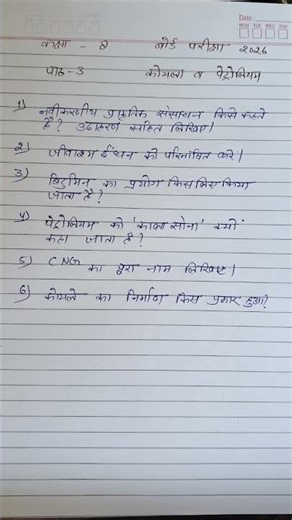 Date
MON TUE WED THU FRI SAT SUN
कक्षा - 8 बोर्ड परीक्षा 2026
पाठ-3 कोयला व पेट्रोलियम
1) नवीकरणीय प्राकृतिक संसाधन किसे कहते
है? उदाहरण सहित लिखिए।
2) जीवाश्म ईंधन को परिभाषित करे।
3) बिटुमिन का प्रयोग किस लिए किया
जाता है?
4) पेट्रोलियम को 'काला सोना' क्यों
कहा जाता है?
5) CNG का पूरा नाम लिखिए।
6) कोयले का निर्माण किस प्रकार हुआ?